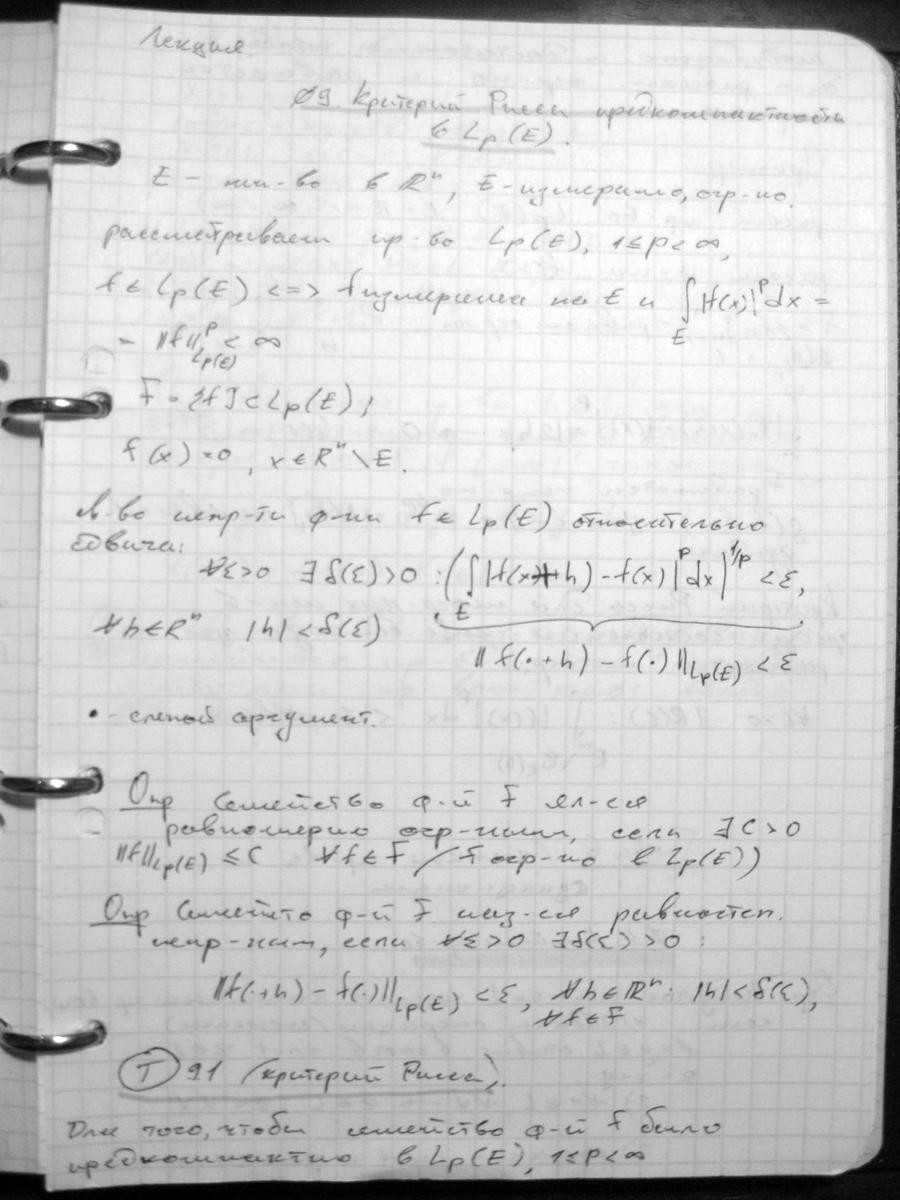 Лекция
§9. Критерий Рисса предкомпактности
в Lp(E).
E – мн-во в ℝⁿ, E-измеримо, огр-но.
рассматриваем пр-во Lp(E), 1≤p<∞,
f∈Lp(E) <=> f измерима на E и ∫_E |f(x)|^p dx =
= ||f||^p_{Lp(E)} < ∞
F = {f} ⊂ Lp(E);
f(x)=0, x∈ℝⁿ\E.
св-во непр-ти ф-ии f∈Lp(E) относительно
сдвига:
∀ε>0 ∃δ(ε)>0 : (∫_E |f(x+h) – f(x)|^p dx)^{1/p} < ε,
∀h∈ℝⁿ |h|<δ(ε)
||f(·+h) – f(·)||_{Lp(E)} < ε
• - слепой аргумент.
Опр Семейство ф-й F яв-ся
равномерно огр-ным, если ∃C>0
||f||_{Lp(E)} ≤ C ∀f∈F (F огр-но в Lp(E))
Опр Семейство ф-й F наз-ся равностеп.
непр-ным, если ∀ε>0 ∃δ(ε)>0 :
||f(·+h) – f(·)||_{Lp(E)} < ε, ∀h∈ℝⁿ: |h|<δ(ε),
∀f∈F
Т 9.1 (критерий Рисса).
Для того, чтобы семейство ф-й F было
предкомпактно в Lp(E), 1≤p<∞